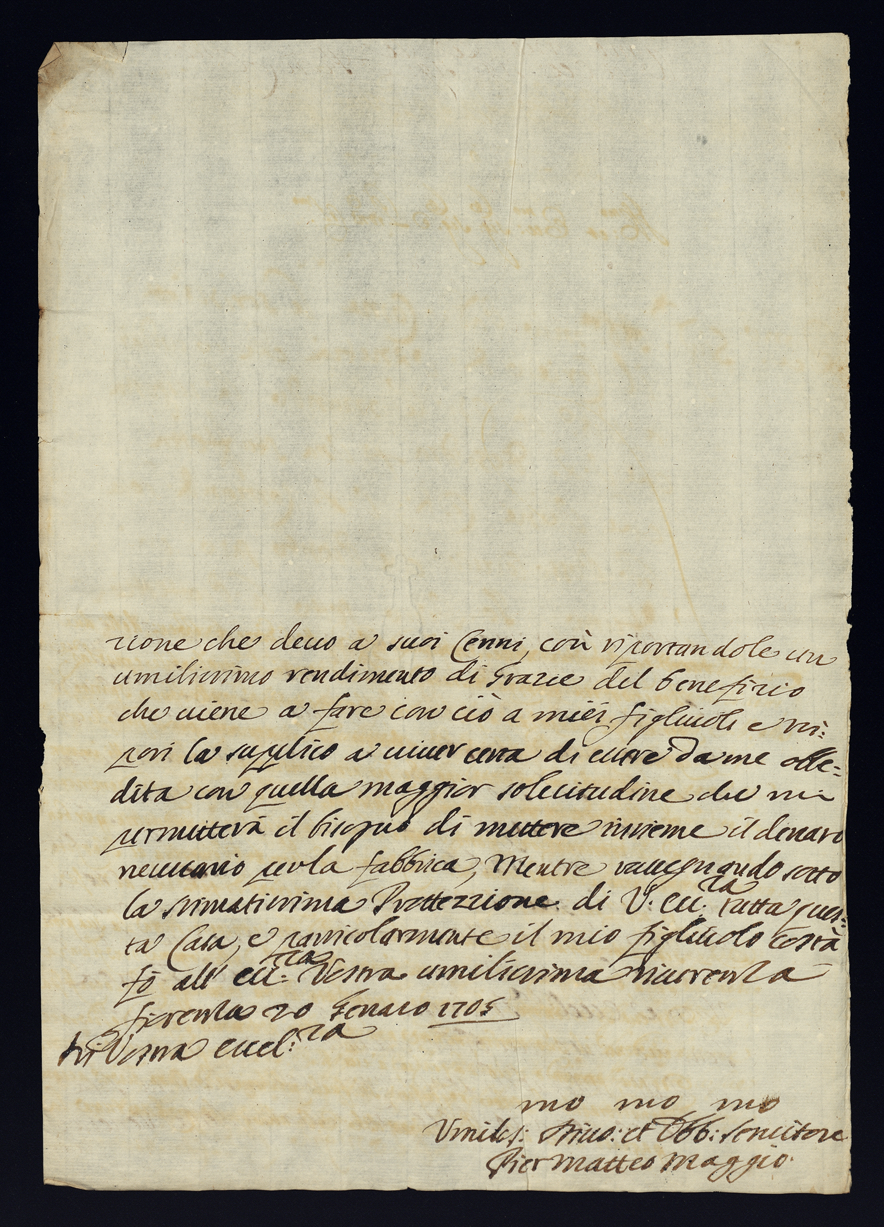 zione che deuo a' suoi Cenni, così riportandole un
umilissimo rendimento di Grazie del benefizio
che viene a fare con ciò a miei figliuoli e ni:
poti la suplico a viver certa di essere da me obbe=
dita con quella maggior solecitudine che mi
permetterà il bisogno di mettere insieme il denaro
necessario per la fabbrica, Mentre rassegnando sotto
la stimatissima Protezzione di V. Ecc:za tutta ques=
ta Casa, e particolarmente il mio figliuolo costà
fò all' Ecc:za Vostra umilissima riuerenza
Fiorenza 20 Genaio 1705
Di Vostra Eccel:za
mo mo mo
Umilis: Diuo: et Obb: Seruitore
Pier Matteo Maggio